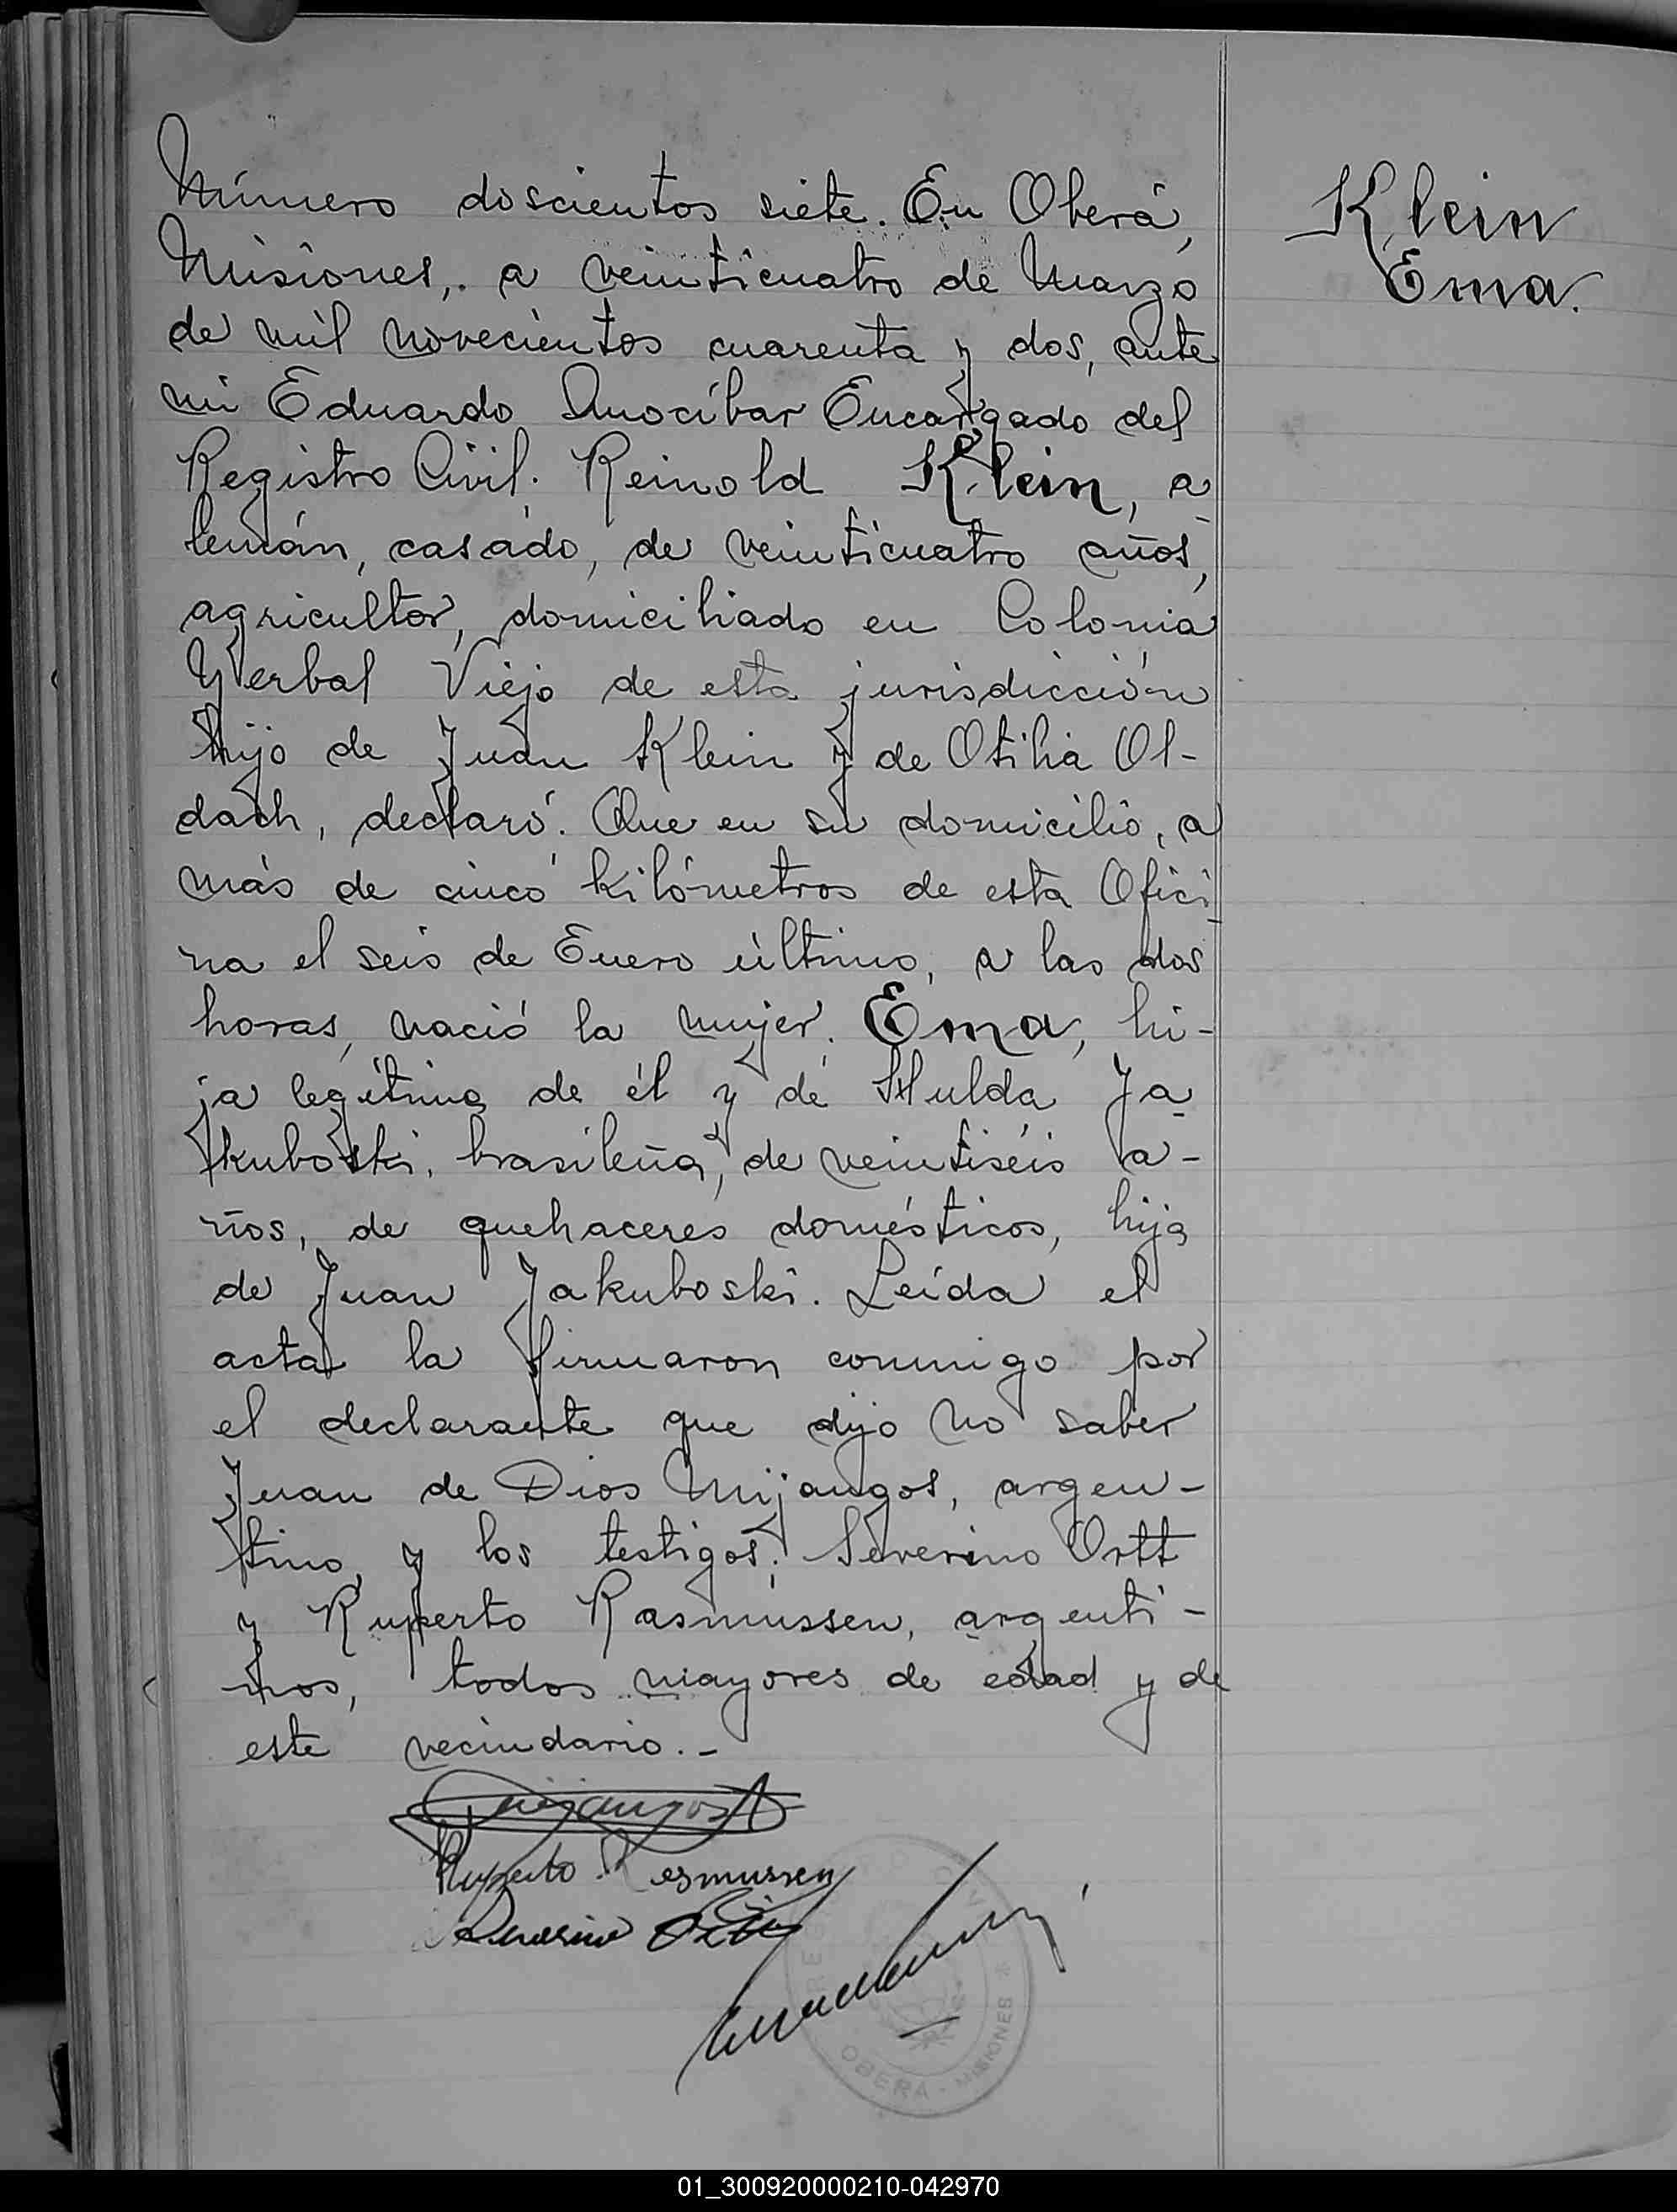 Número doscientos siete. En Oberá,
Misiones, a veinticuatro de Marzo
de mil novecientos cuarenta y dos, ante
mi Eduardo Amocíbar Encargado del
Registro Civil. Reinold Klein, a
lemán, casado, de veinticuatro años,
agricultor, domiciliado en Colonia
Yerbal Viejo de esta jurisdicción
hijo de Juan Klein y de Otilia Ol-
dach, declaró: Que en su domicilio, a
más de cinco kilómetros de esta Ofici
na el seis de Enero último, a las dos
horas, nació la mujer: Ema, hi-
ja legítima de él y de Hulda Ja
kuboski, brasileña, de veintiséis a-
ños, de quehaceres domésticos, hija
de Juan Jakuboski. Leída el
acta la firmaron conmigo por
el declarante que dijo no saber
Juan de Dios Mijangos, argen-
tino, y los testigos: Severino Ortt
y Ruperto Rasmussen, argenti-
nos, todos mayores de edad y de
este vecindario.-
Klein
Ema.
Mijangos
Ruperto Rasmussen
Severino
OBERÁ - MISIONES
01_300920000210-042970